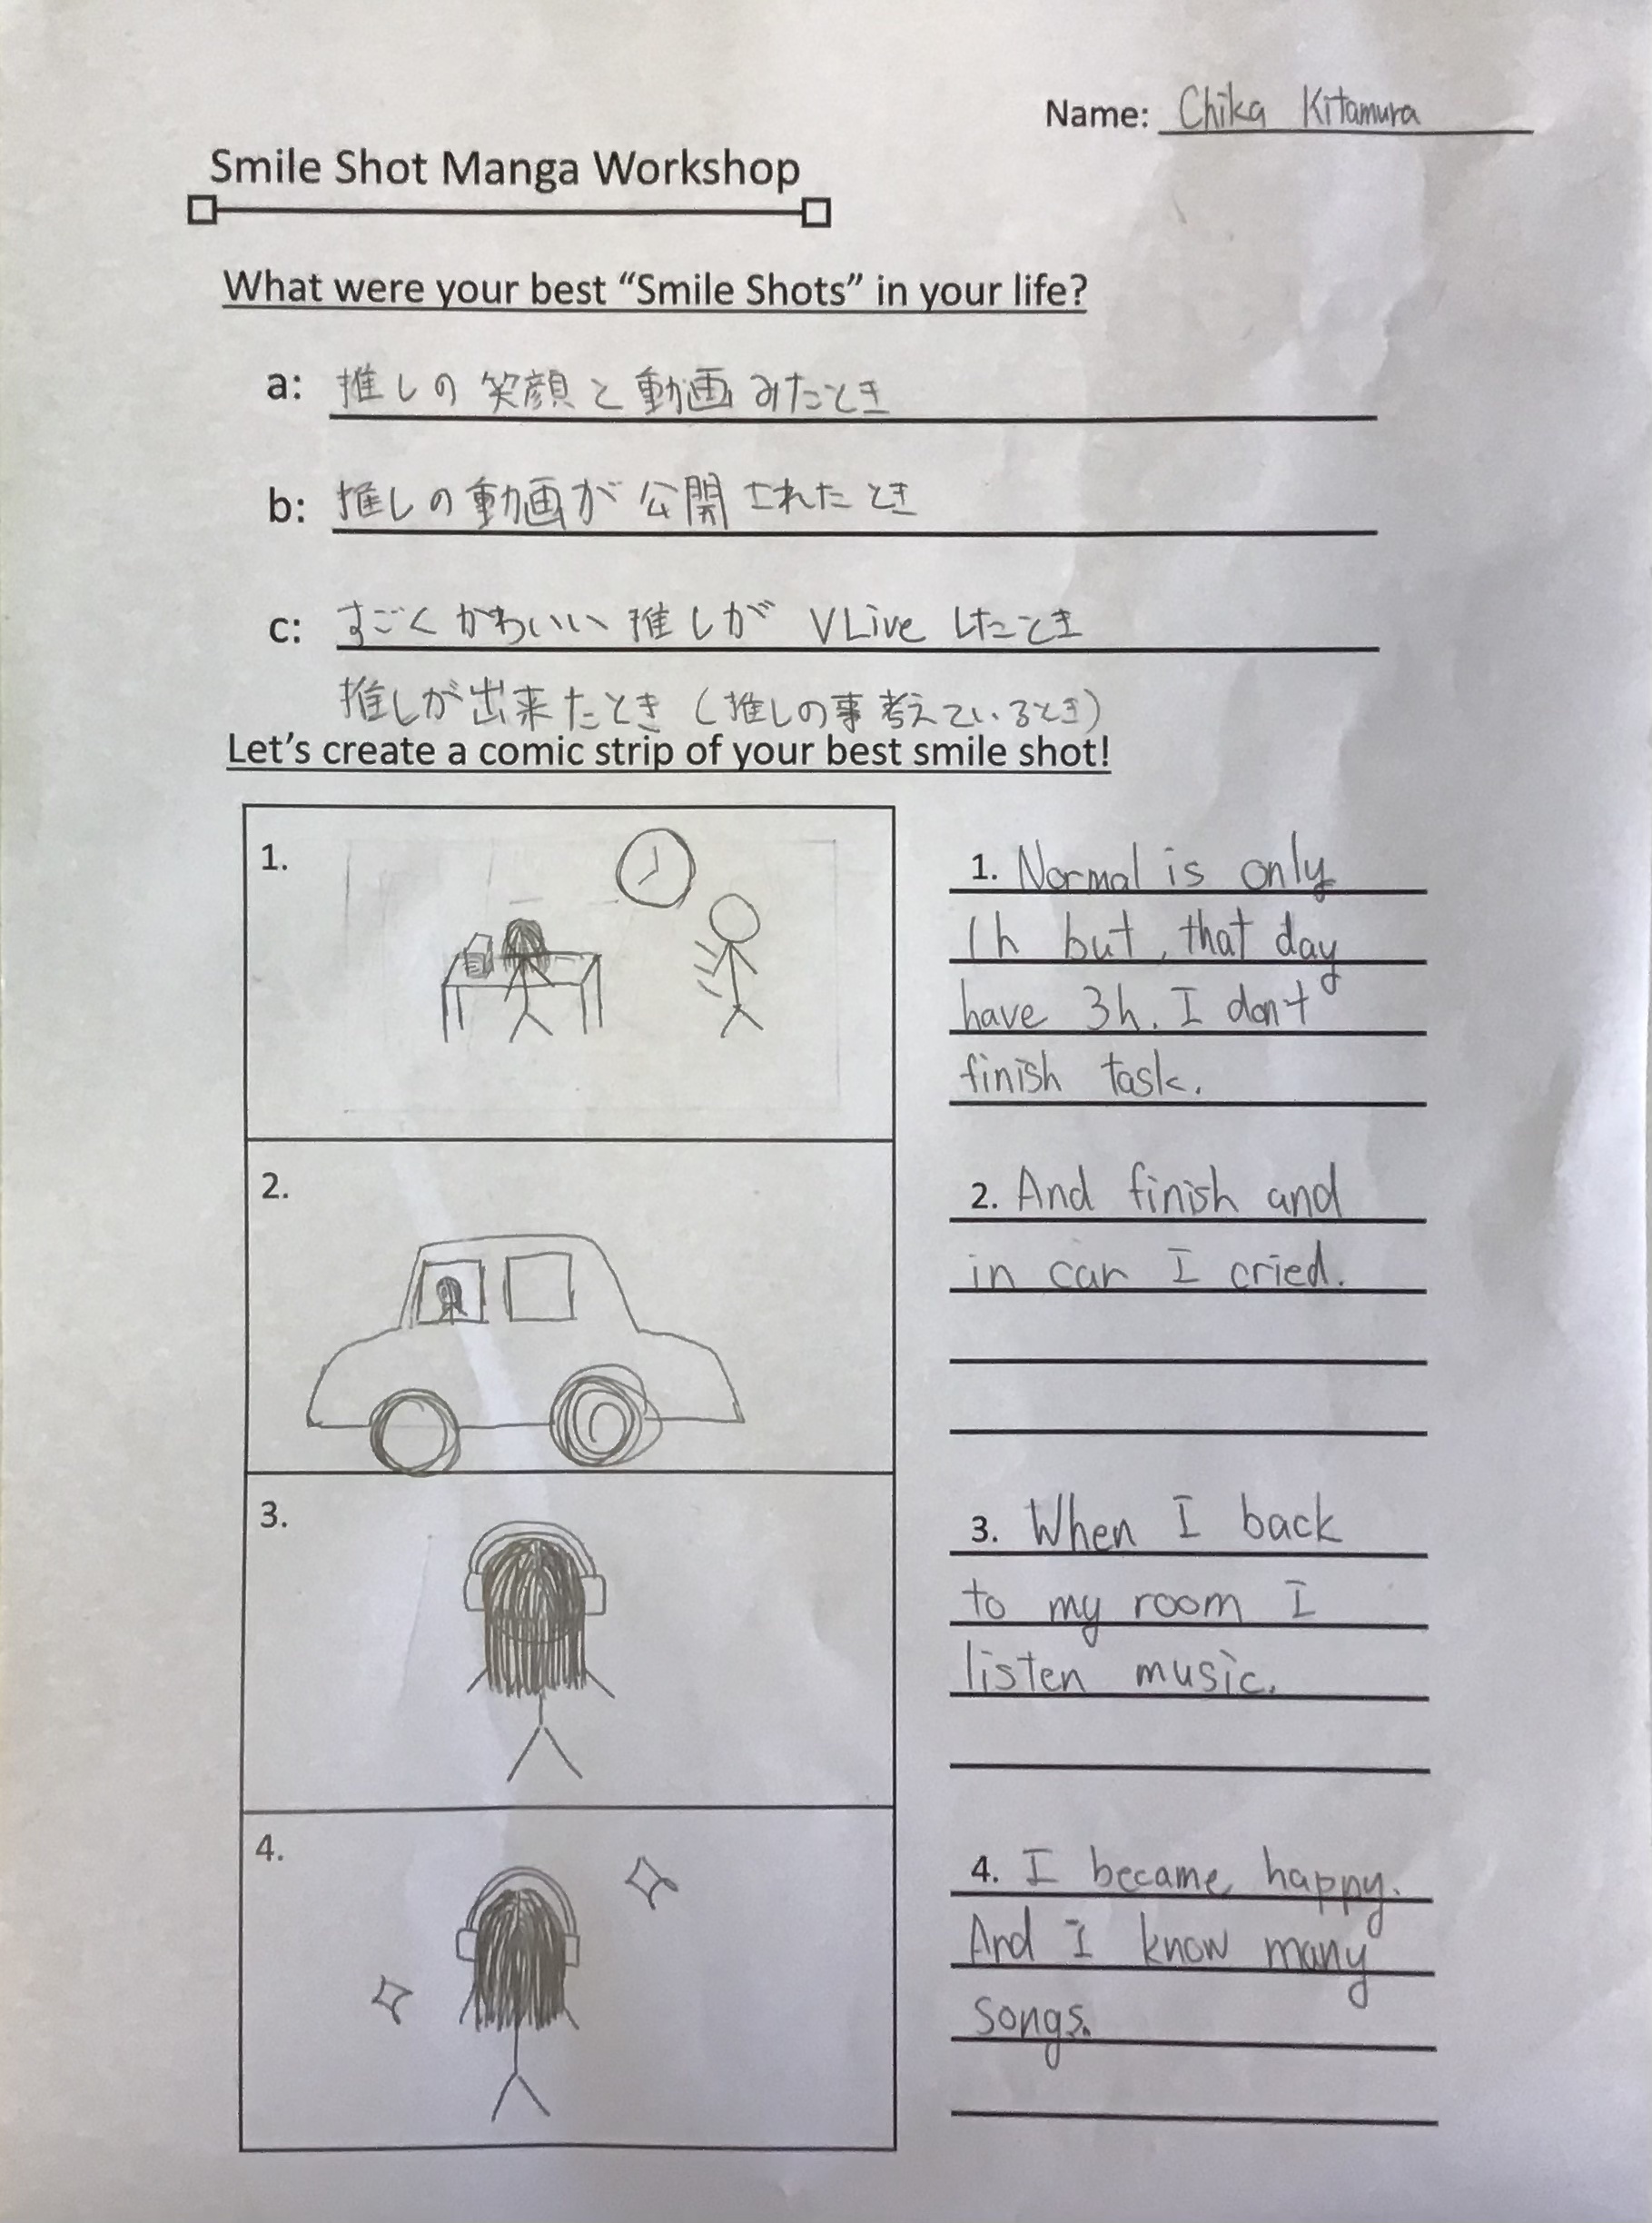 Name: Chika Kitamura
Smile Shot Manga Workshop
What were your best “Smile Shots” in your life?
a: 推しの笑顔と動画みたとき
b: 推しの動画が公開されたとき
c: すごくかわいい推しが VLive したとき
推しが出来たとき (推しの事考えているとき)
Let’s create a comic strip of your best smile shot!
1.
1. Normal is only
1h but, that day
have 3h. I don't
finish task.
2.
2. And finish and
in car I cried.
3.
3. When I back
to my room I
listen music.
4.
4. I became happy.
And I know many
songs.